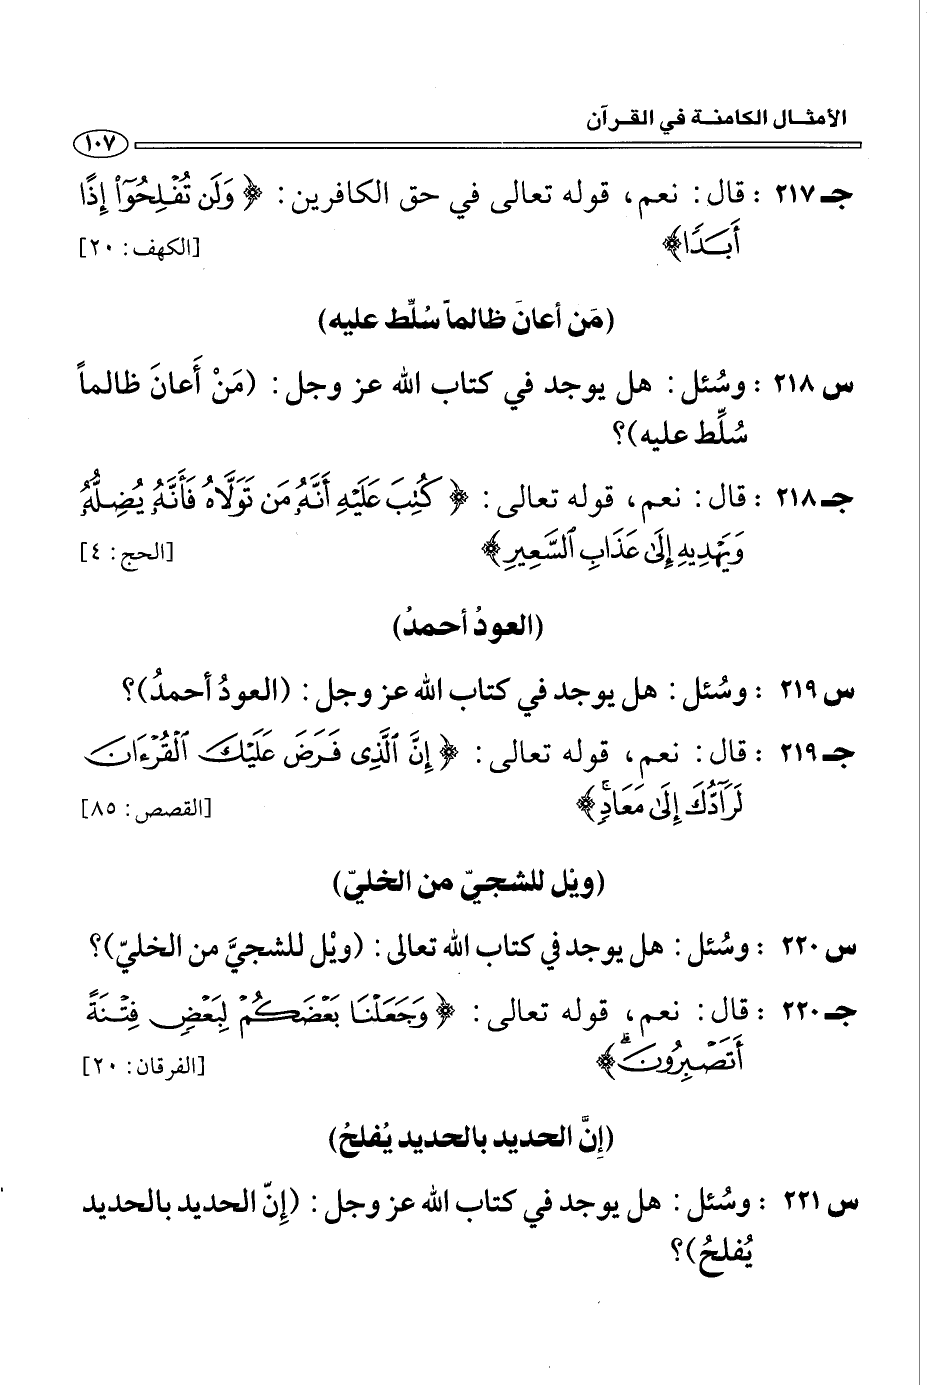 الأمثـال الكامنـة في القـرآن
١٠٧
جـ ٢١٧ : قال: نعم، قوله تعالى في حق الكافرين: ﴿ وَلَن تُفْلِحُوٓا۟ إِذًا
أَبَدًا﴾ [الكهف: ٢٠]
(مَن أعانَ ظالماً سُلِّط عليه)
س ٢١٨ : وسُئل: هل يوجد في كتاب الله عز وجل: (مَنْ أَعانَ ظالماً
سُلِّط عليه)؟
جـ ٢١٨ : قال: نعم، قوله تعالى: ﴿ كُتِبَ عَلَيْهِ أَنَّهُۥ مَن تَوَلَّاهُ فَأَنَّهُۥ يُضِلُّهُۥ
وَيَهْدِيهِ إِلَىٰ عَذَابِ ٱلسَّعِيرِ﴾ [الحج: ٤]
(العودُ أحمدُ)
س ٢١٩ : وسُئل: هل يوجد في كتاب الله عز وجل: (العودُ أحمدُ)؟
جـ ٢١٩ : قال: نعم، قوله تعالى: ﴿ إِنَّ ٱلَّذِى فَرَضَ عَلَيْكَ ٱلْقُرْءَانَ
لَرَآدُّكَ إِلَىٰ مَعَادٍۚ﴾ [القصص: ٨٥]
(ويْل للشجيّ من الخليّ)
س ٢٢٠ : وسُئل: هل يوجد في كتاب الله تعالى: (ويْل للشجيَّ من الخليّ)؟
جـ ٢٢٠ : قال: نعم، قوله تعالى: ﴿ وَجَعَلْنَا بَعْضَكُمْ لِبَعْضٍ فِتْنَةً
أَتَصْبِرُونَۗ﴾ [الفرقان: ٢٠]
(إنَّ الحديد بالحديد يُفلحُ)
س ٢٢١ : وسُئل: هل يوجد في كتاب الله عز وجل: (إنّ الحديد بالحديد
يُفلحُ)؟